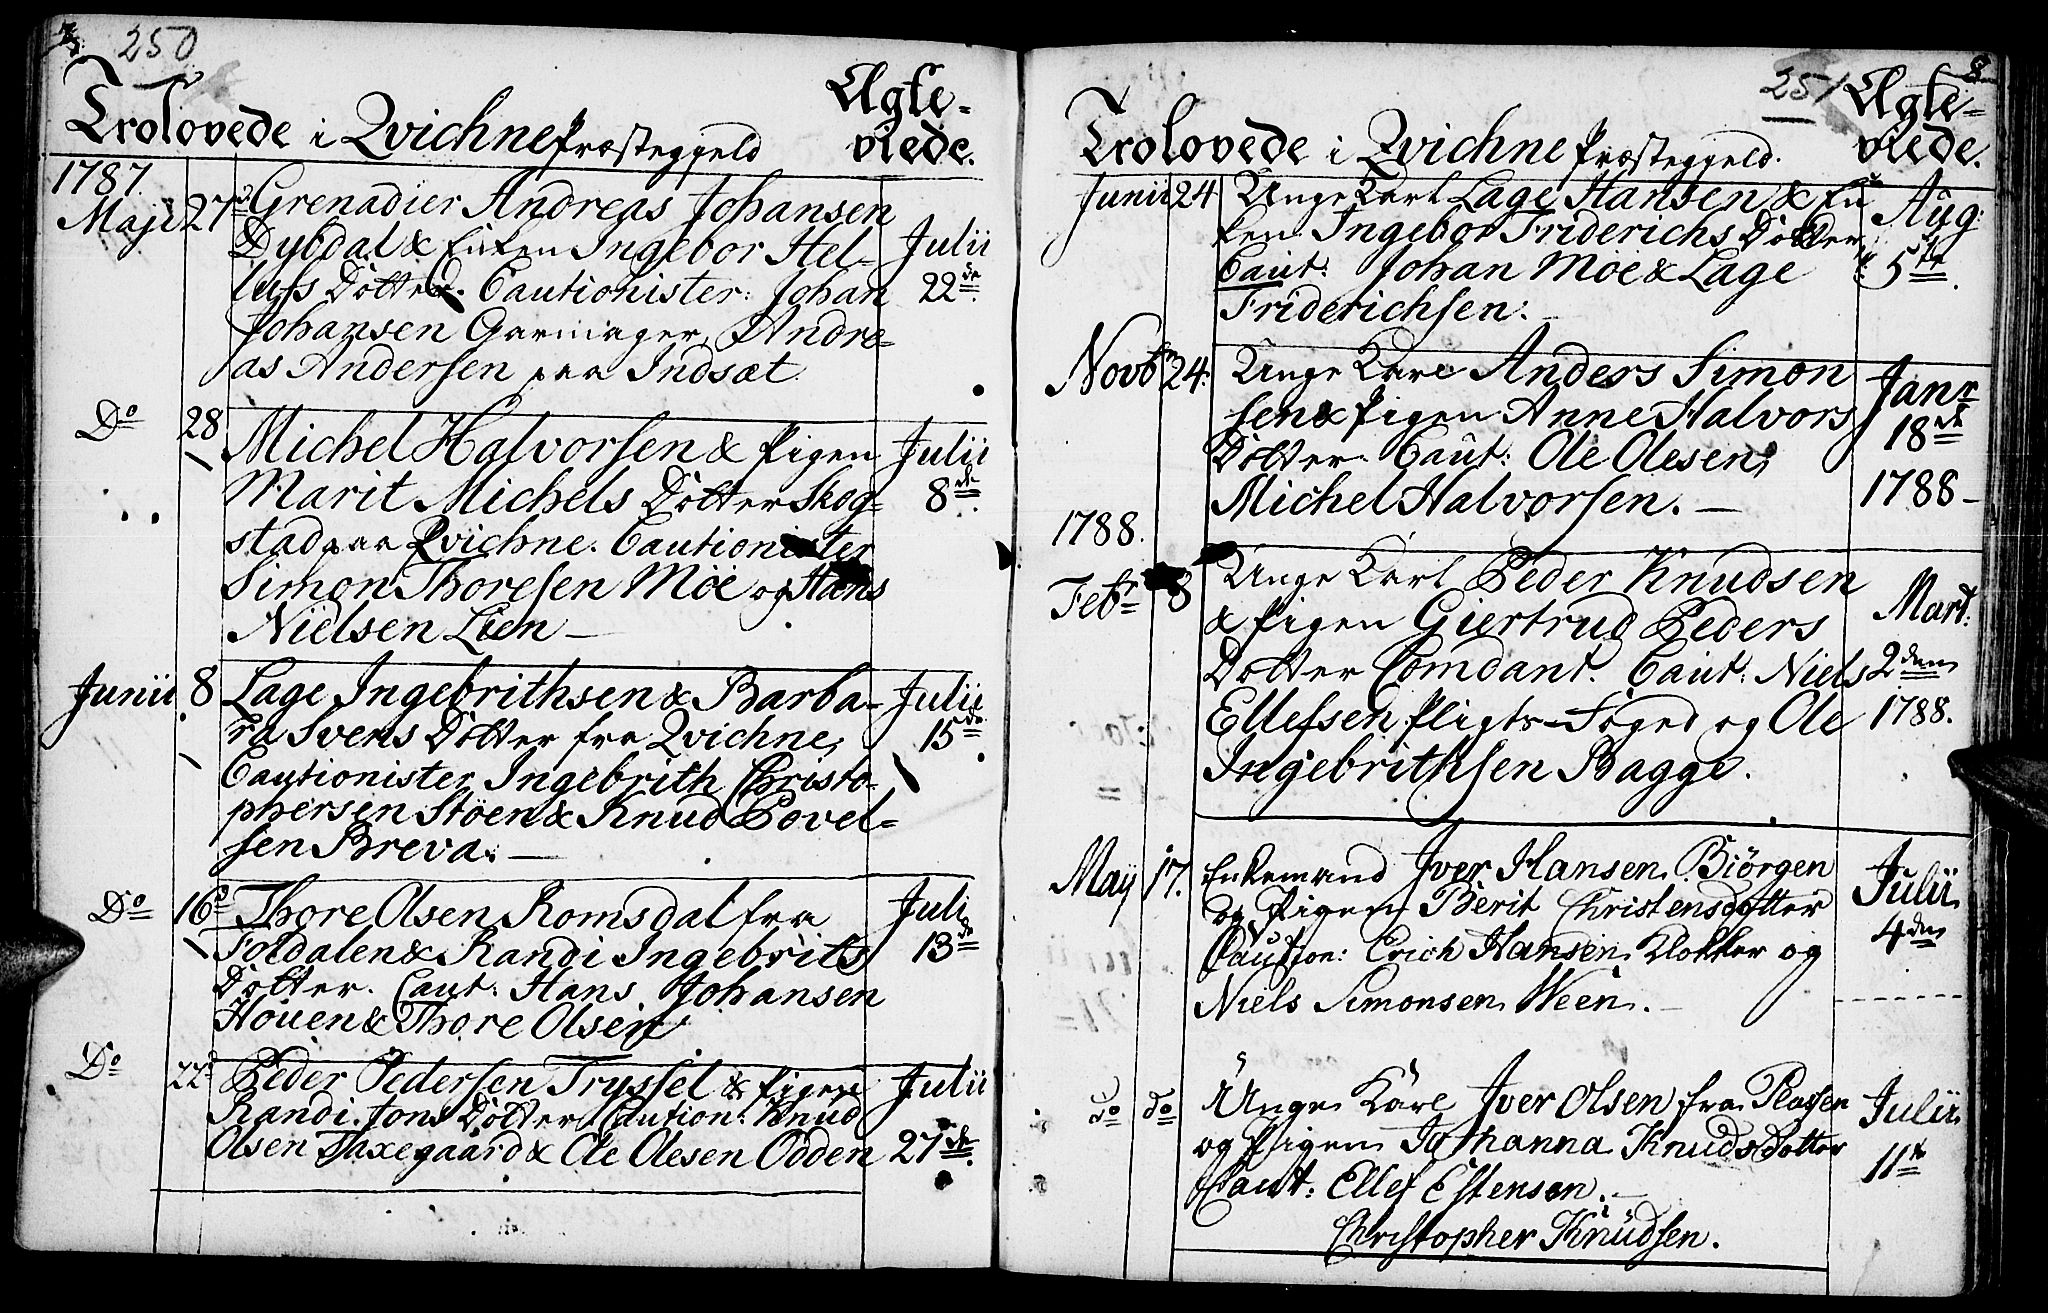 250
Trolovede i Qvichne Præsteggeld
Ægte-
viede.
1787.
Maji 27 Grenadier Andreas Johansen
Dybdal & Enken Ingebor Hel-
lufs Dötter. Cautionister: Johan
Johansen Garmager, Andre-
as Andersen paa Indsæt.
Julii
22de
Do 28 Michel Halvorsen & Pigen
Marit Michels Dötter Skog-
stad paa Qvichne. Cautionister
Simon Thoresen Möe og Hans
Nielsen Lien —
Julii
8de
Junii 8 Lage Ingebrithsen & Barba-
ra Svens Dötter fra Qvichne,
Cautionister Ingebrith Christo-
phersen Stöen & Knud Povel-
sen Breva. —
Julii
15de
Do 16 Thore Olsen Romsdal fra
Foldalen & Randi Ingebrits
Dötter. Caut: Hans Johansen
Houen & Thore Olsen
Juli
13de
Do 22 Peder Pedersen Tryssel & Pigen
Randi Jons Dötter Caution: Knud
Olsen Taxegaard & Ole Olesen Odden
Julii
27de
251
8
Trolovede i Qvichne Præsteggeld.
Ægte-
viede.
Junii 24 Unge Karl Lage Hansen & En
ken Ingebor Friderichs Dötter
Caut: Johan Möe & Lage
Friderichsen. —
Aug:
5te
Novbr 24. Unge Karl Anders Simon
sen & Pigen Anne Halvors
Dötter. Caut: Ole Olesen,
Michel Halvorsen. —
Janr
18de
1788 –
1788.
Febr 8 Unge Karl Peder Knudsen
& Pigen Giertrud Peders
Dotter Comdant. Caut: Niels
Ellefsen Pligts-Foged og Ole
Ingebrithsen Bagge.
Mart:
2den
1788.
Maij 17. Enkemand Iver Hansen Biörgen
og Pigen Berit Christensdotter
Caution: Erich Hansen Klokker og
Niels Simonsen Ween. —
Julii
4den
do do Unge Karl Iver Olsen fra Plassen
og Pigen Johanna Knudsdotter
Caut: Ellef Estensen. —
Christopher Knudsen.
Julii
11te